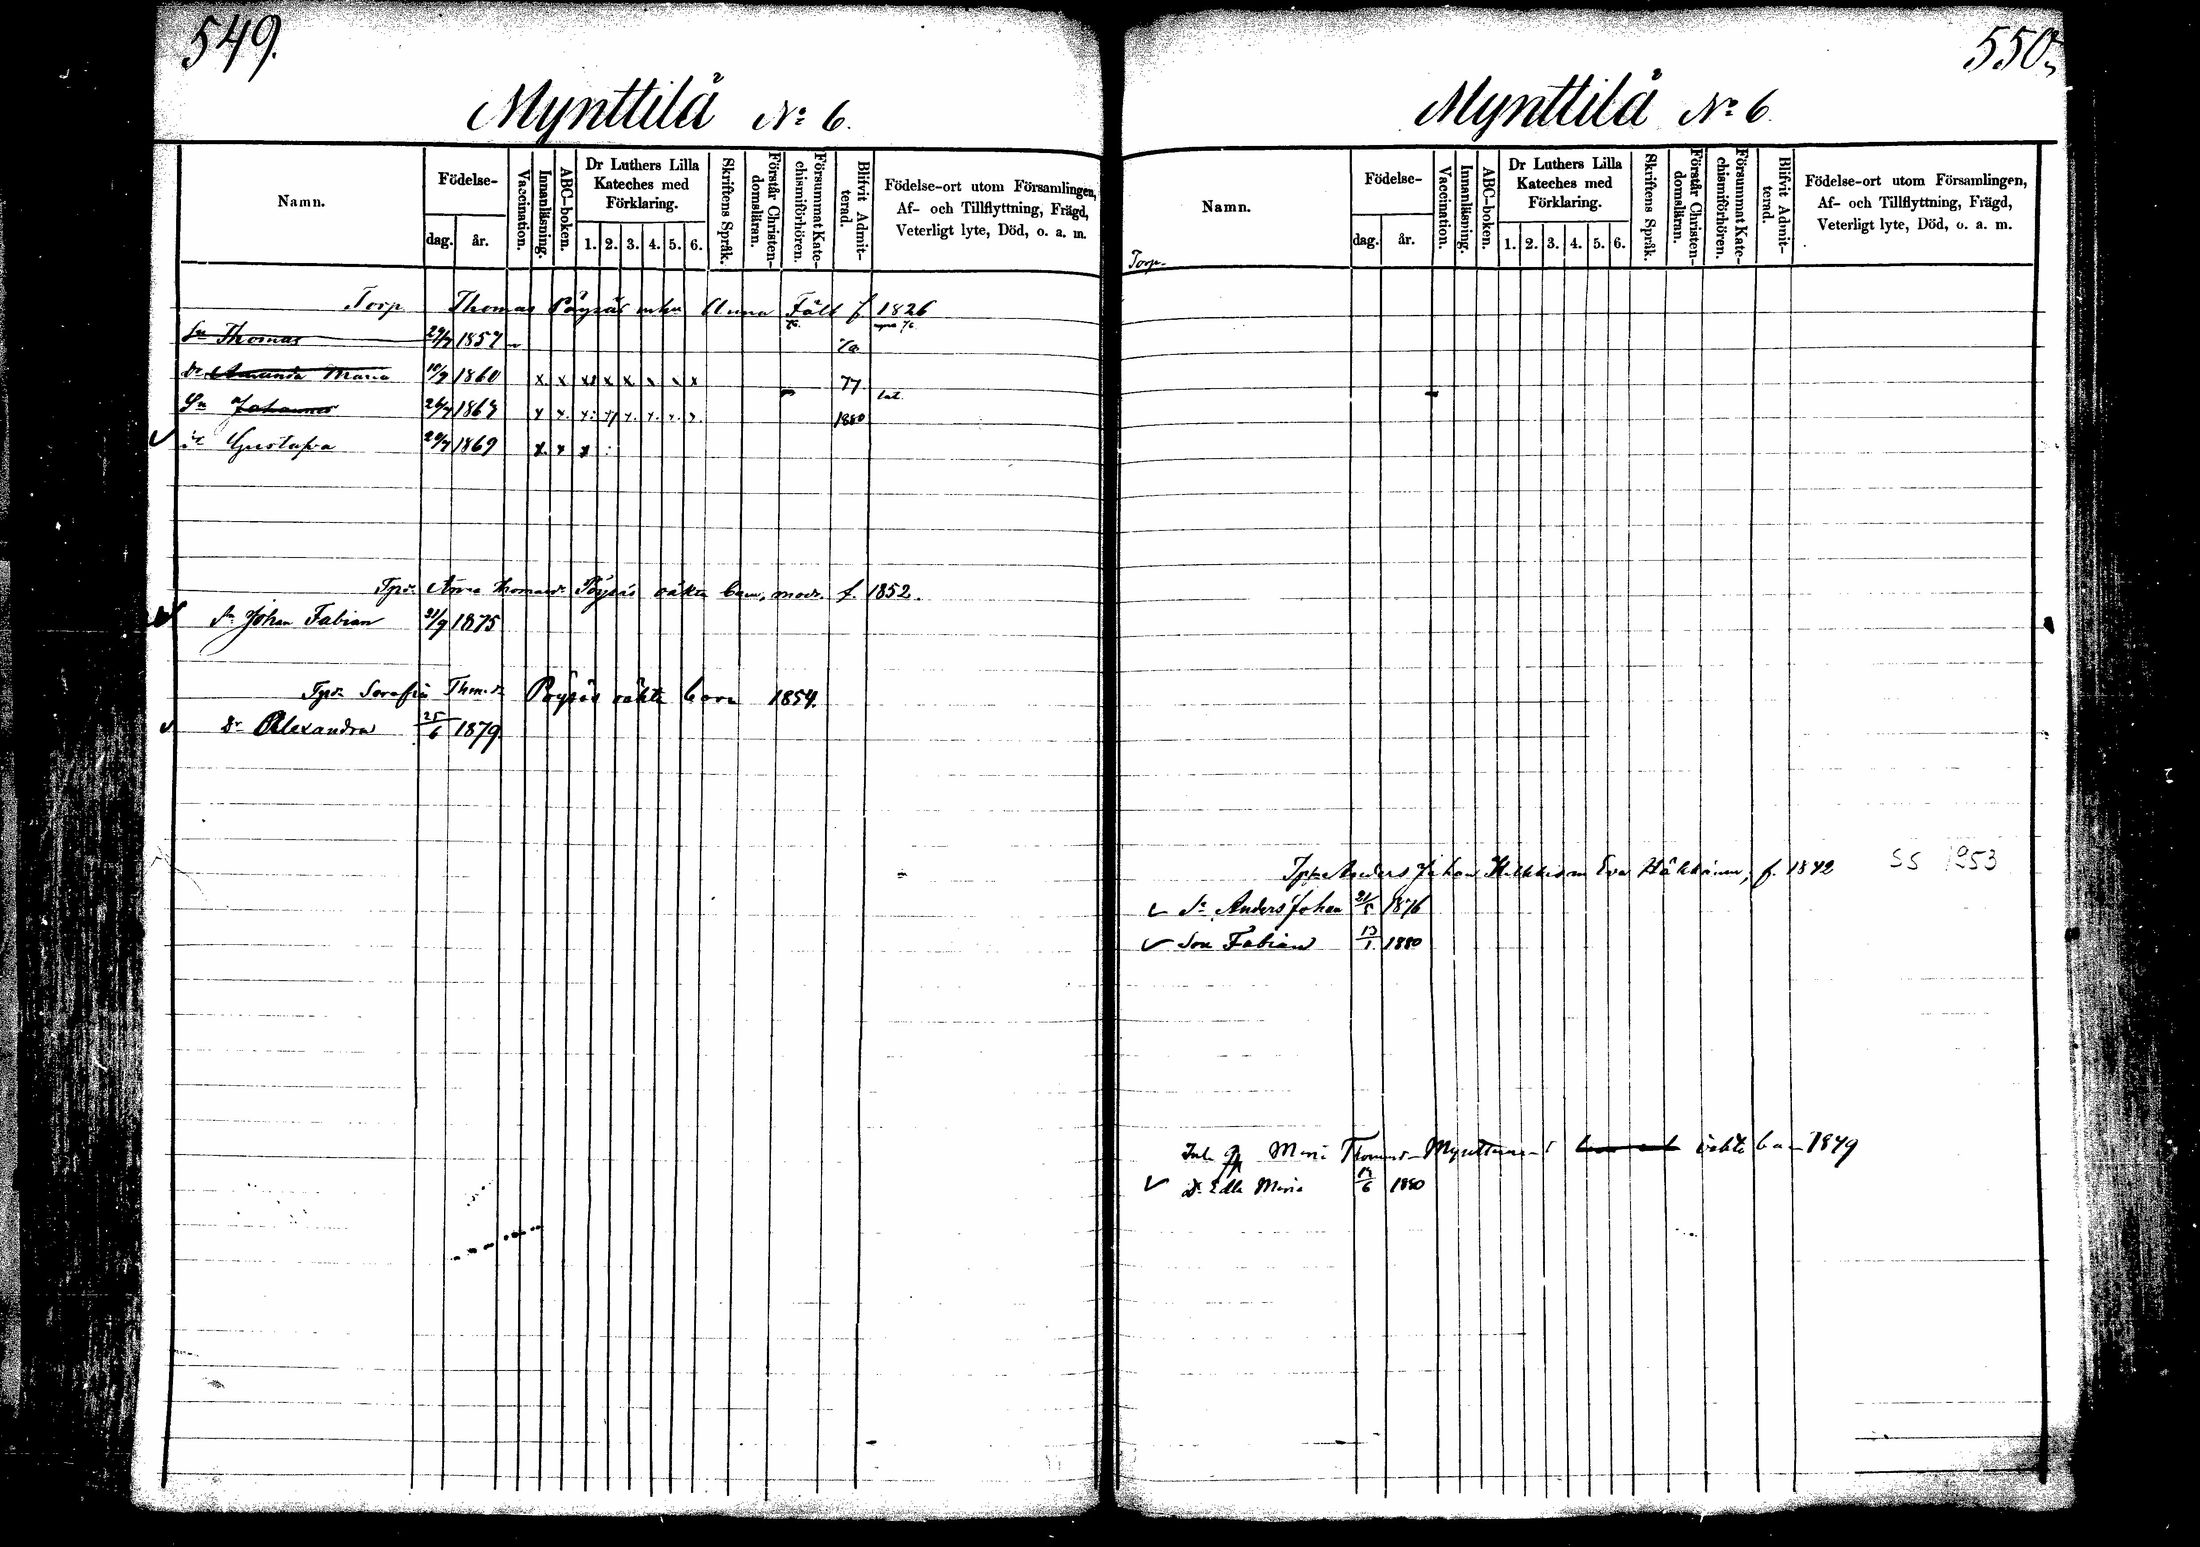 549.
Mynttilä № 6.
Namn.
Födelse-
dag. år.
Vaccination.
Innanläsning.
ABC-boken.
Dr Luthers Lilla Kateches med Förklaring.
1. 2. 3. 4. 5. 6.
Skriftens Språk.
Förstår Christen-domsläran.
Försummat Kate-chismiförhören.
Blifvit Admit-terad.
Födelse-ort utom Församlingen,
Af- och Tillflyttning, Frägd,
Veterligt lyte, Död, o. a. m.
Torp Thomas Pöysäs enka Anna Fält f 1826
Sn Thomas 29/7 1857
Dr Amanda Maria 10/9 1860 x x x x x x x x 77
Sn Johannes 26/7 1867 1880
Gustafva 20/7 1869 x x x
Tpd. Anna Thomasd. Pöysäs oäkta barn, modr. f. 1852.
Sn Johan Fabian 21/9 1875
Tpdr Serafia Thm.dr Pöysäs oäkta barn 1854.
Dr Alexandra 25/6 1879
550.
Mynttilä № 6.
Namn.
Födelse-
dag. år.
Vaccination.
Innanläsning.
ABC-boken.
Dr Luthers Lilla Kateches med Förklaring.
1. 2. 3. 4. 5. 6.
Skriftens Språk.
Förstår Christen-domsläran.
Försummat Kate-chismiförhören.
Blifvit Admit-terad.
Födelse-ort utom Församlingen,
Af- och Tillflyttning, Frägd,
Veterligt lyte, Död, o. a. m.
Torp-
Anders Johan Eva Häkkinen, f. 1842 SS 1953
Sn Anders Johan 21/5 1876
Son Fabian 13/1 1880
Inh Maria Thomasd. oäkta barn 1849
Dr Edla Maria 1880